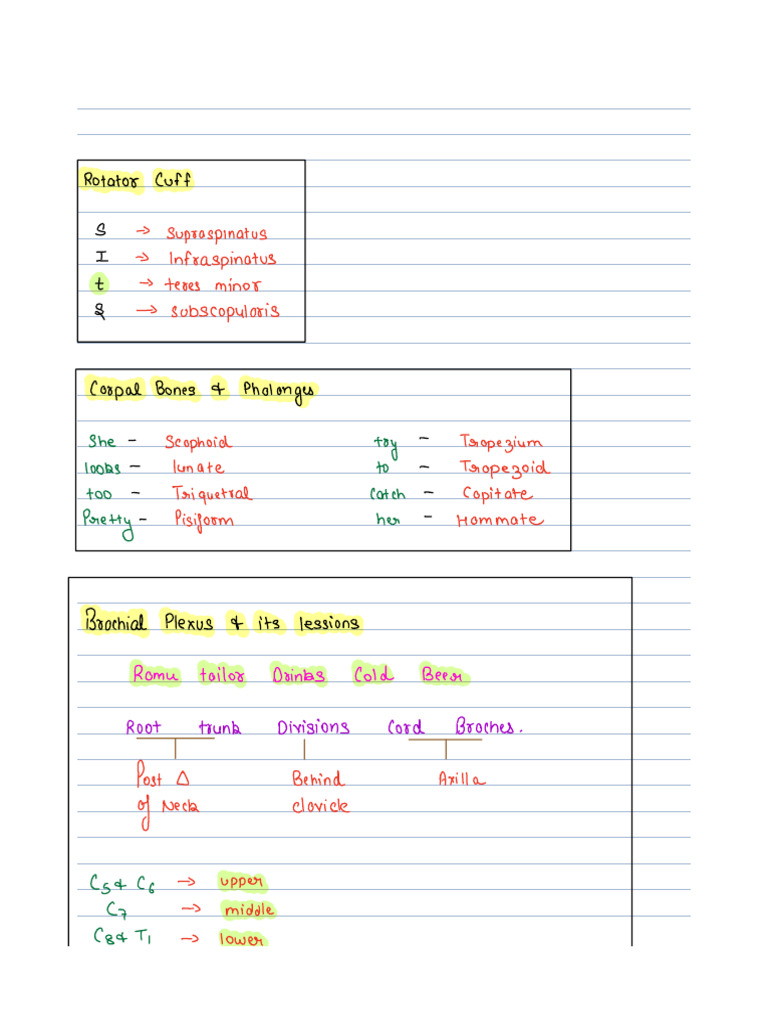 Rotator Cuff
S → Supraspinatus
I → Infraspinatus
t → teres minor
S → subscapularis
Carpal Bones & Phalanges
She - Scaphoid try - Trapezium
looks - lunate to - Trapezoid
too - Triquetral Catch - Capitate
Pretty - Pisiform her - Hammate
Brachial Plexus & its lessions
Ramu tailor Drinks Cold Beer
Root trunk Divisions Cord Braches.
Post Δ Behind Axilla
of Neck clavick
C5 & C6 → upper
C7 → middle
C8 & T1 → lower